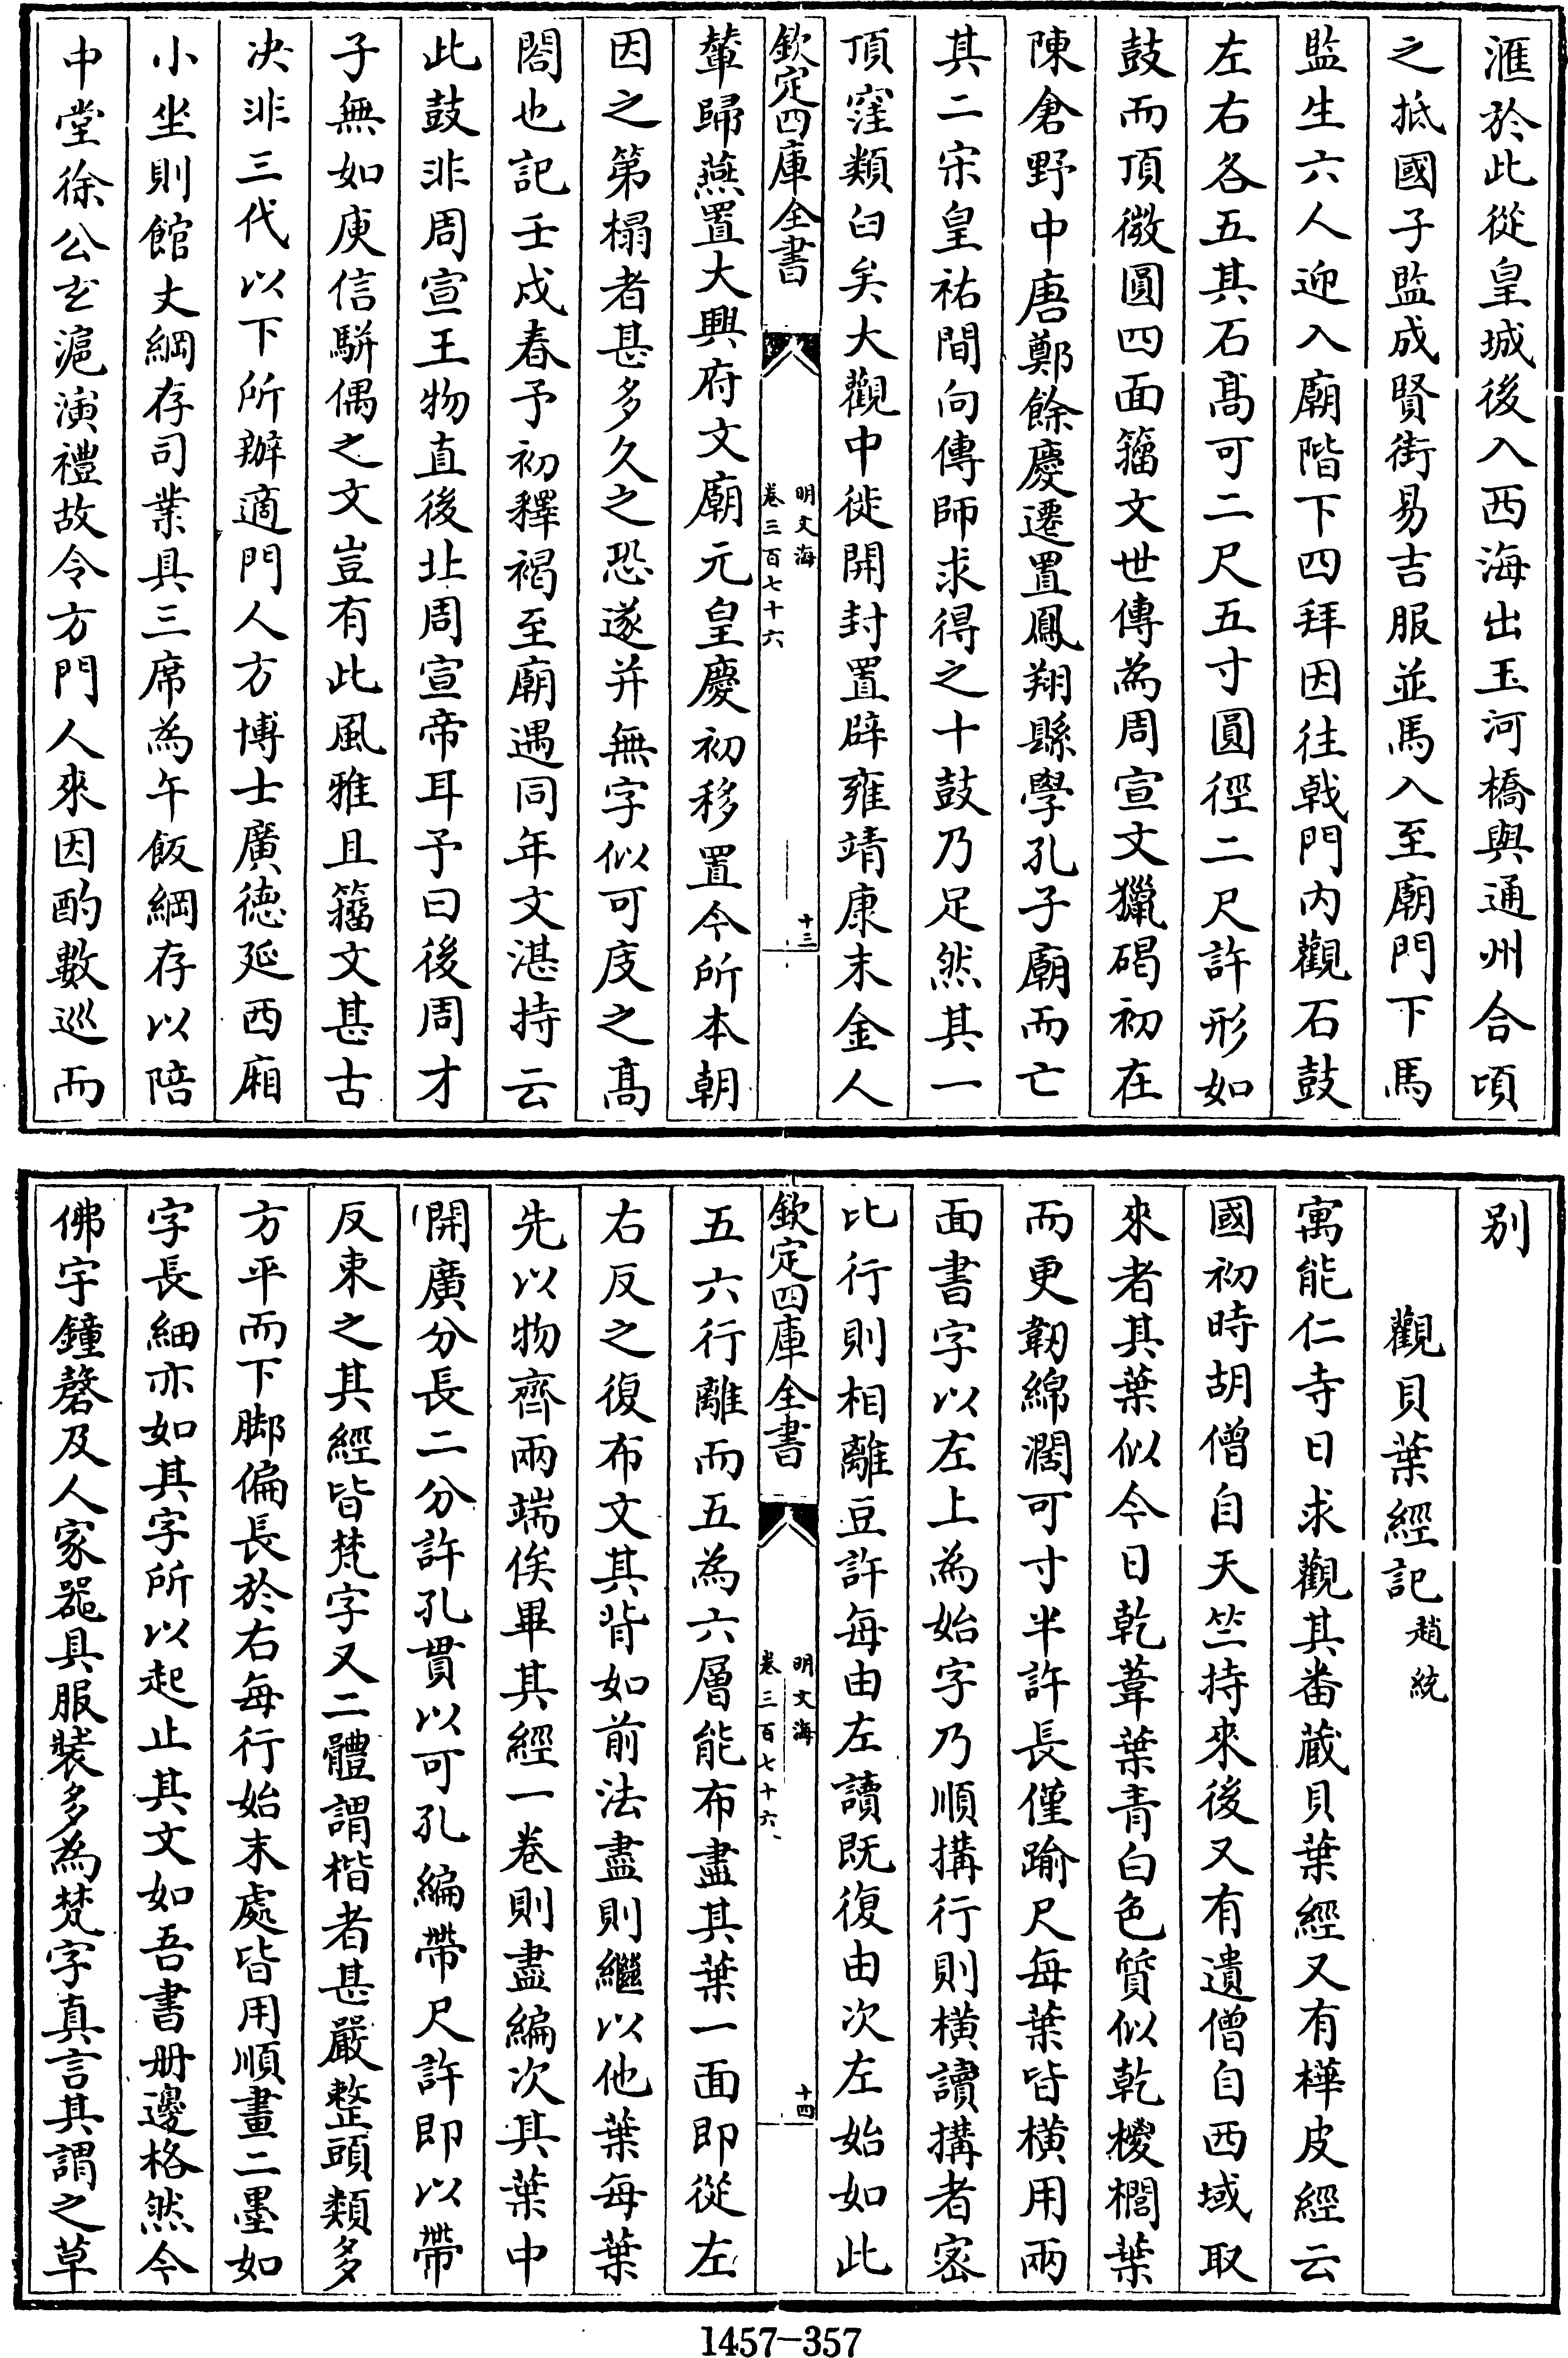 滙於此從皇城後入西海出玉河橋與通州合頃
之抵國子監成賢街易吉服並馬入至廟門下馬
監生六人迎入廟階下四拜因往㦸門内觀石鼓
左右各五其石髙可二尺五寸圓徑二尺許形如
鼓而頂微圓四面籀文世傳為周宣文獵碣初在
陳倉野中唐鄭餘慶遷置鳳翔縣學孔子廟而亡
其二宋皇祐間向傳師求得之十鼓乃足然其一
頂窪類臼矣大觀中徙開封置辟雍靖康末金人
欽定四庫全書
明文海
卷三百七十六
十三
輦歸燕置大興府文廟元皇慶初移置今所本朝
因之第榻者甚多久之恐遂并無字似可庋之髙
閣也記壬戌春予初釋褐至廟遇同年文湛持云
此鼓非周宣王物直後北周宣帝耳予曰後周才
子無如庾信駢偶之文豈有此風雅且籀文甚古
决非三代以下所辦適門人方博士廣德延西廂
小坐則館丈綱存司業具三席為午飯綱存以陪
中堂徐公玄滬演禮故令方門人來因酌數巡而
别
觀貝葉經記 趙統
寓能仁寺日求觀其畨藏貝葉經又有樺皮經云
國初時胡僧自天竺持來後又有遺僧自西域取
來者其葉似今日乾葦葉青白色質似乾椶櫚葉
而更韌綿濶可寸半許長僅踰尺每葉皆横用兩
面書字以左上為始字乃順搆行則横讀搆者宻
比行則相離豆許每由左讀既復由次左始如此
欽定四庫全書
明文海
卷三百七十六
十四
五六行離而五為六層能布盡其葉一面即從左
右反之復布文其背如前法盡則繼以他葉每葉
先以物齊兩端俟畢其經一卷則盡編次其葉中
開廣分長二分許孔貫以可孔編帶尺許即以帶
反束之其經皆梵字又二體謂楷者甚嚴整頭類多
方平而下脚偏長於右每行始末處皆用順畫二墨如
字長細亦如其字所以起止其文如吾書册邊格然今
佛宇鐘磬及人家器具服裝多為梵字真言其謂之草
1457-357